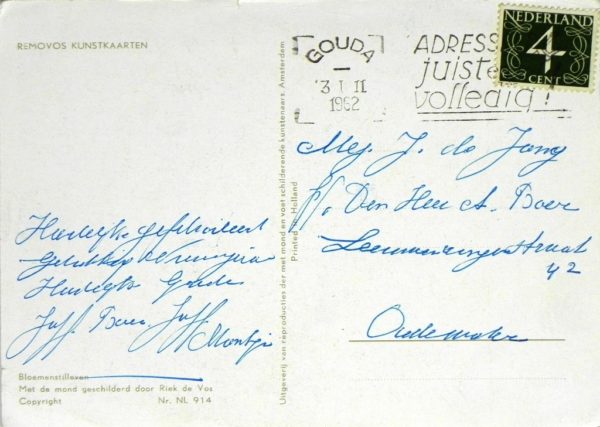 REMOVOS KUNSTKAARTEN
GOUDA
3 I II
1962
ADRESS
juiste
volledig!
NEDERLAND
4
CENT
Hartelijk gefeliciteerd
Hartelijk
Juff. Boer. Juff
Bloemenstilleven
Met de mond geschilderd door Riek de Vos
Copyright Nr. NL 914
Uitgeverij van reproducties der met mond en voet schilderende kunstenaars, Amsterdam
Printed in Holland
Mej. J. de Jong
p/a. Den Heer A. Boer
42
Oudewater